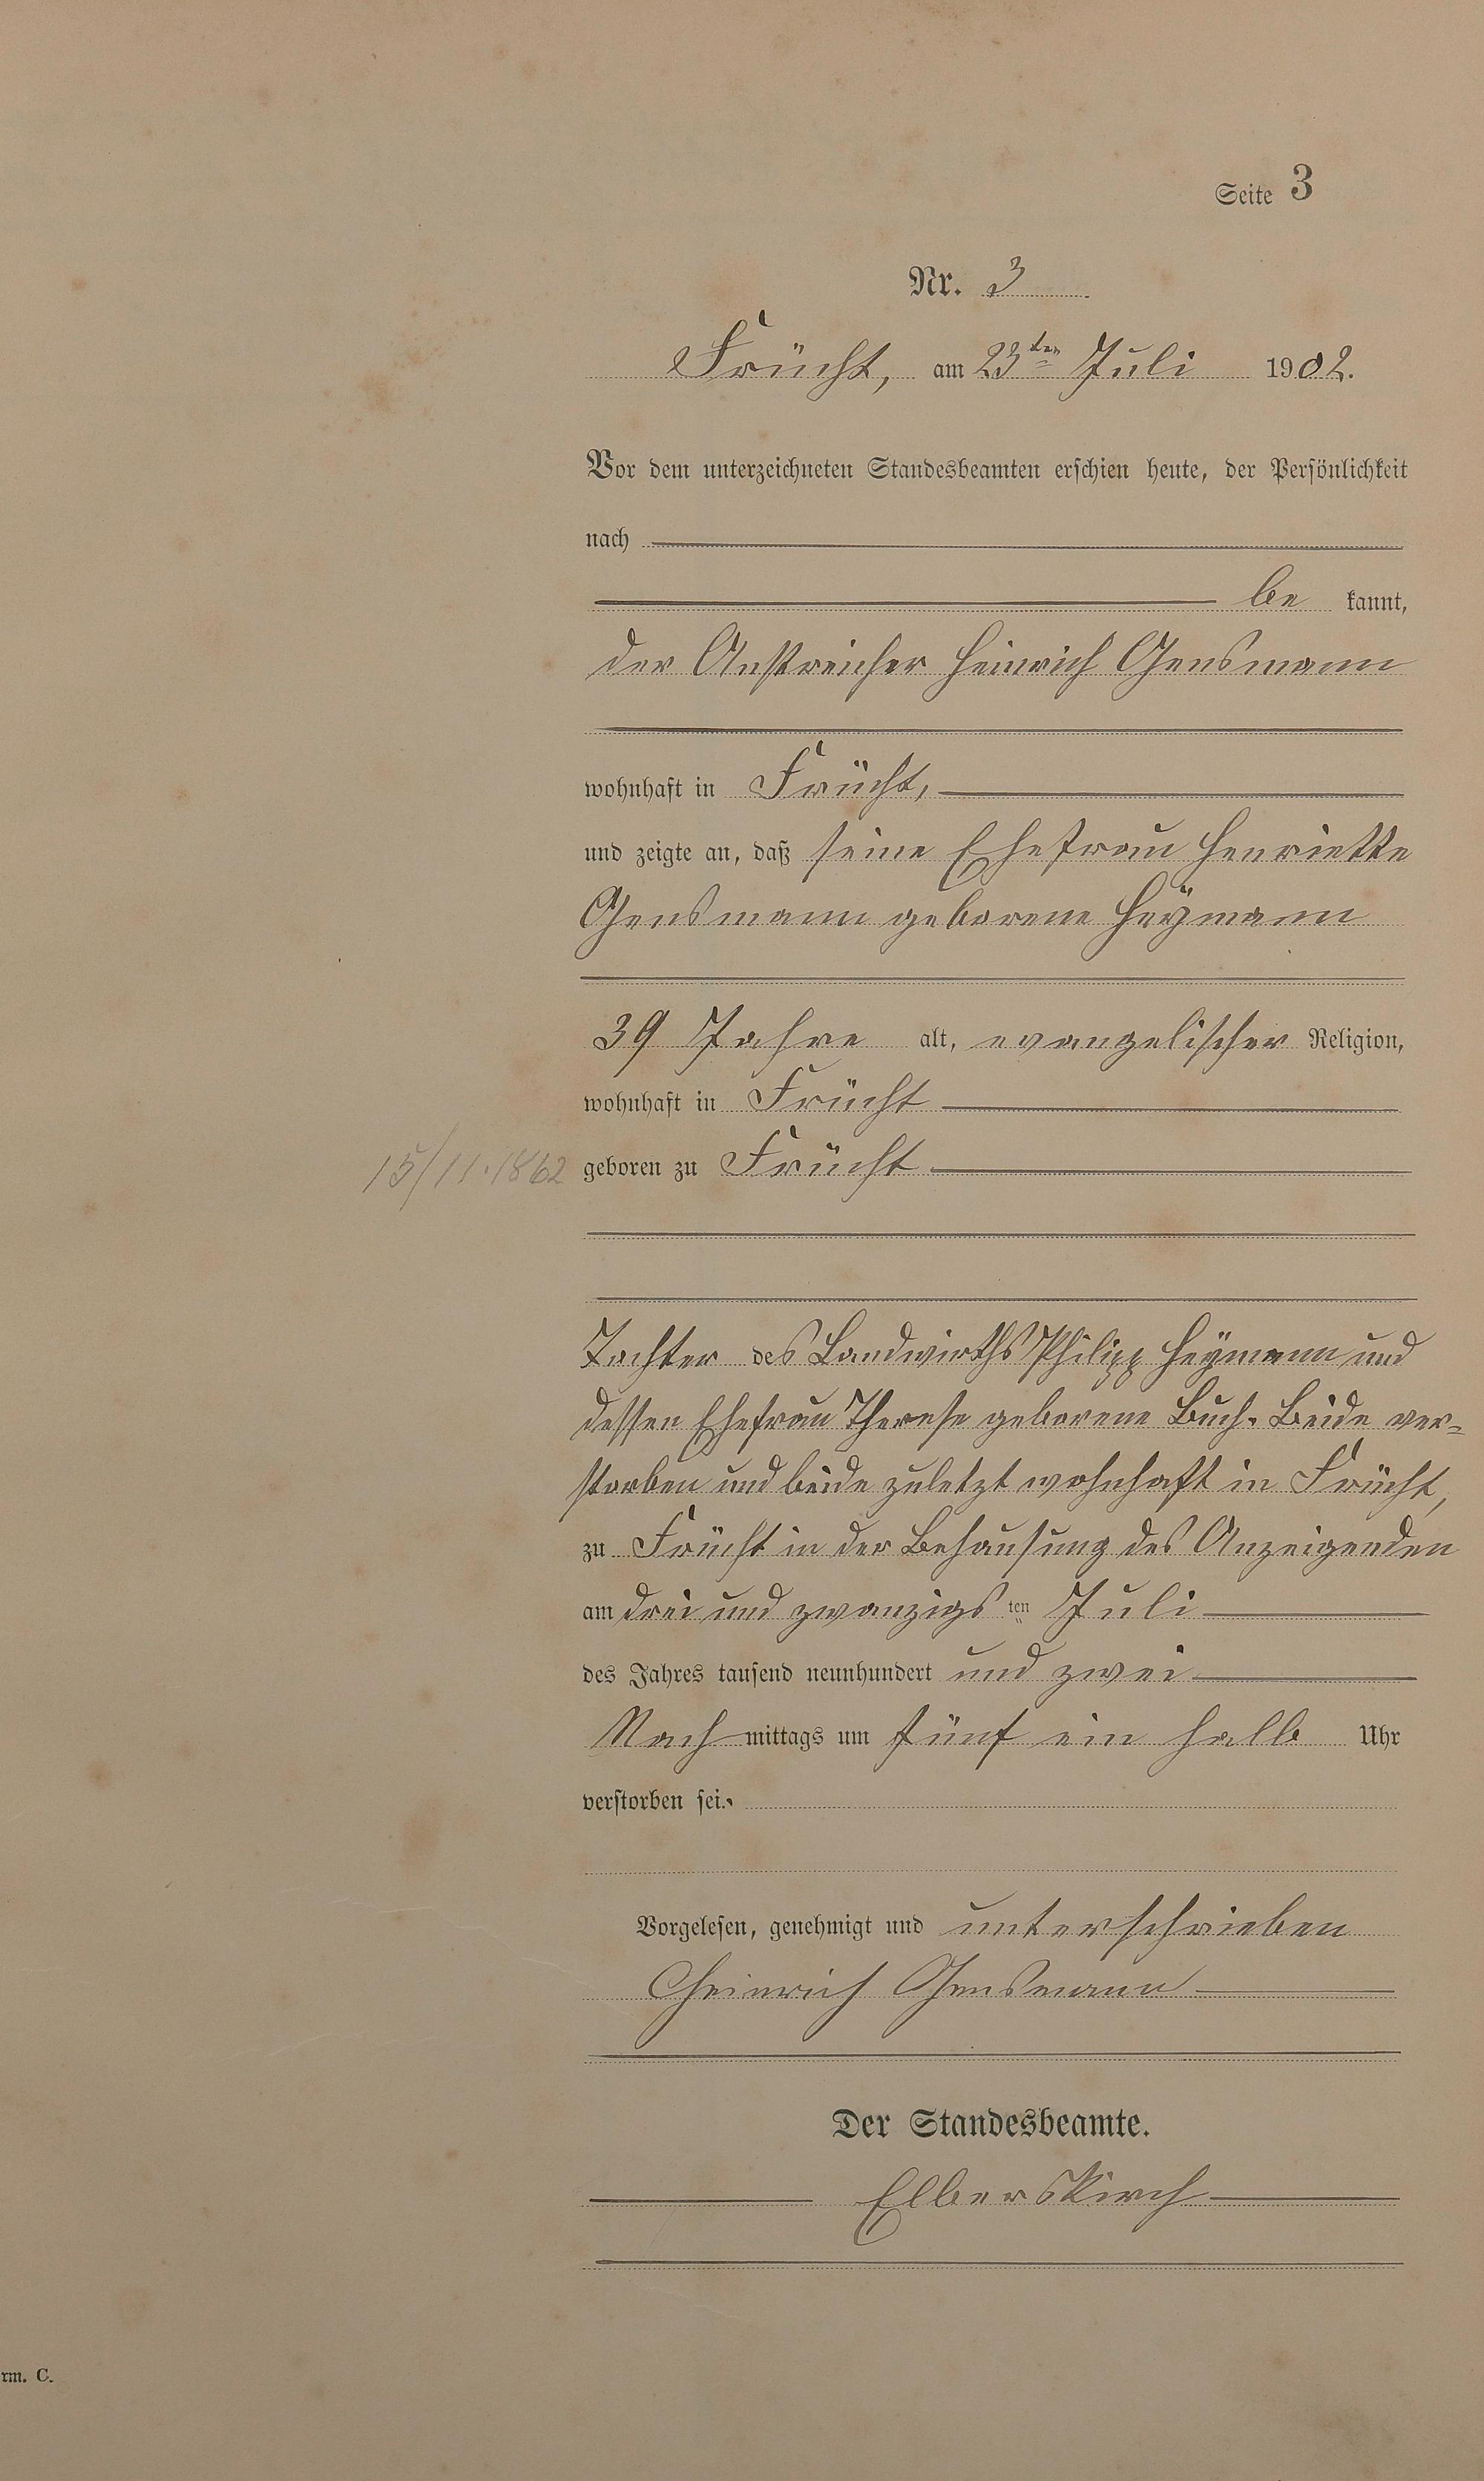 Seite 3
Nr. 3
Frücht, am 23ten Juli 1902.
Vor dem unterzeichneten Standesbeamten erschien heute, der Persönlichkeit
nach
be kannt,
der Anstreicher Heinrich Gensmann
wohnhaft in Frücht,
und zeigte an, daß seine Ehefrau Henriette
Gensmann geborene Heymann
39 Jahre alt, evangelischer Religion,
wohnhaft in Frücht
15/11.1862 geboren zu Frücht
Tochter des Landwirths Philipp Heymann und
dessen Ehefrau Therese geborene Buch. Beide ver=
storben und beide zuletzt wohnhaft in Frücht,
zu Frücht in der Behausung des Anzeigenden
am drei und zwanzigs ten Juli
des Jahres tausend neunhundert und zwei
Nach mittags um fünf ein halb Uhr
verstorben sei.
Vorgelesen, genehmigt und unterschrieben
Heinrich Gensmann
Der Standesbeamte.
Elberskirch
rm. C.